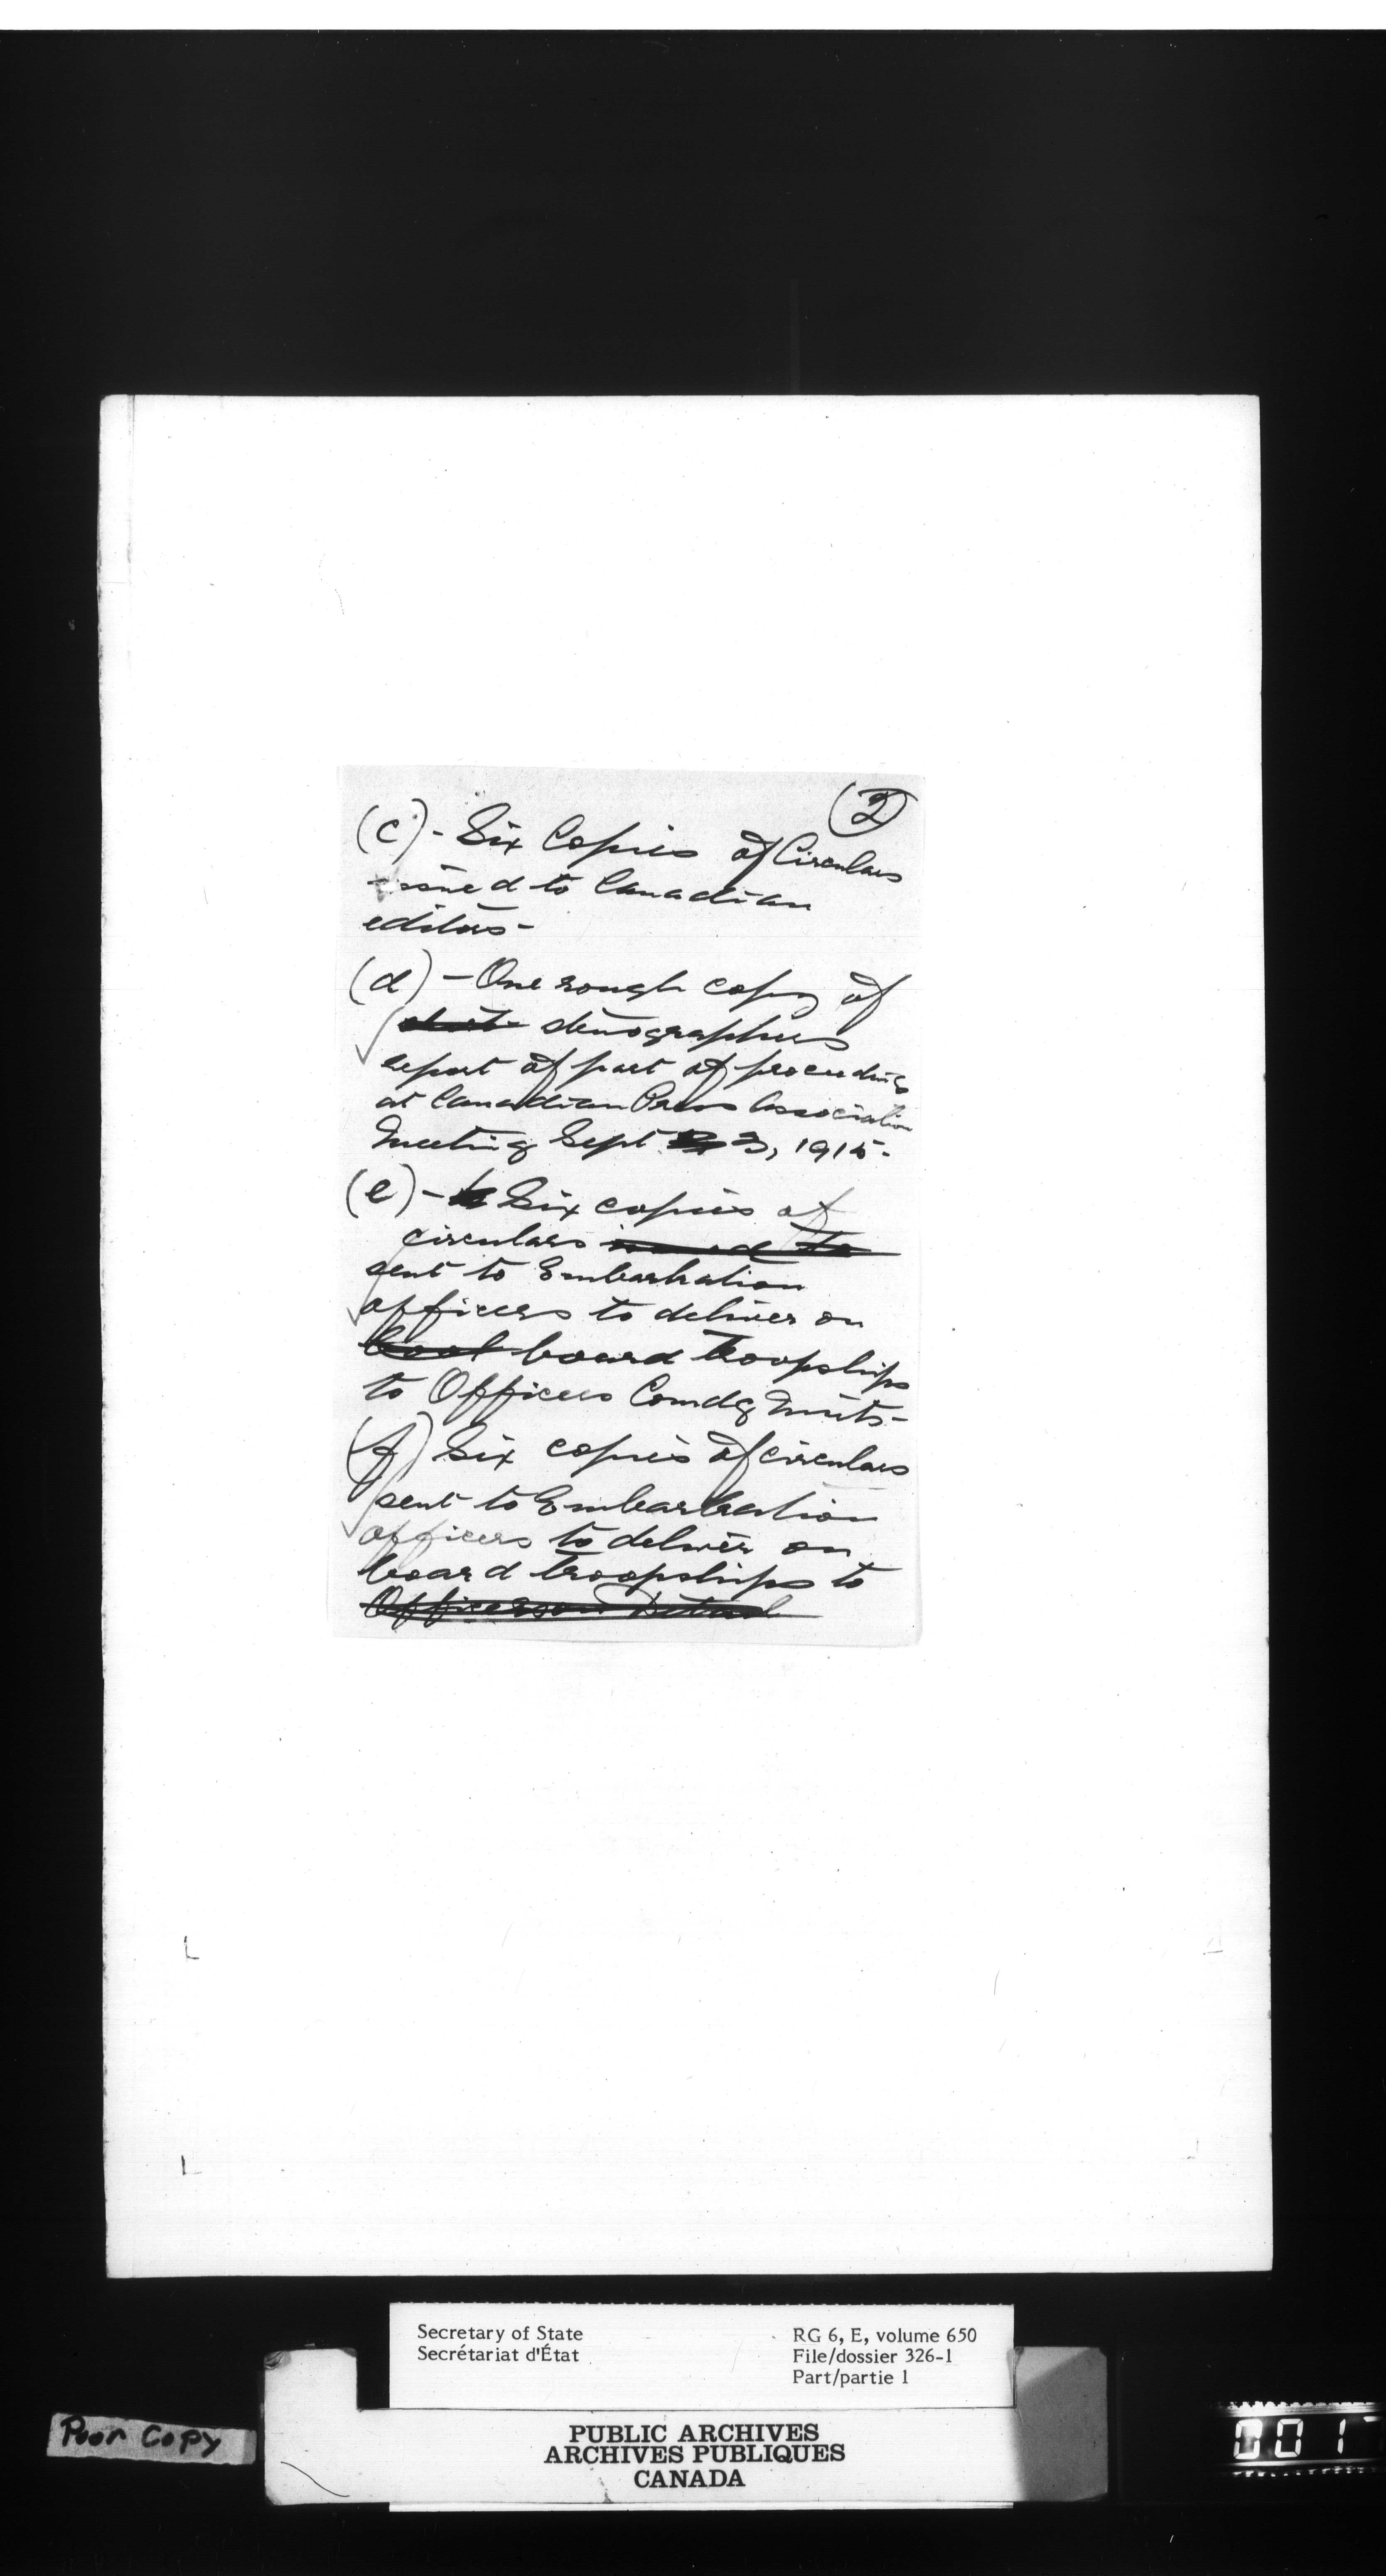 (2)
(c) - Six Copies of Circulars
issued to Canadian
editors -
(d) - One rough copy of
stenographers
report of part of proceedings
at Canadian Press Association
Meeting Sept 3, 1915.
(e) - Six copies of
circulars issued to
sent to Embarkation
officers to deliver on
boat board Troopships
to Officers Comdg Units -
(f) Six copies of circulars
sent to Embarkation
officers to deliver on
board troopships to
Officers on
Secretary of State
Secrétariat d'État
RG 6, E, volume 650
File/dossier 326-1
Part/partie 1
Poor Copy
PUBLIC ARCHIVES
ARCHIVES PUBLIQUES
CANADA
001